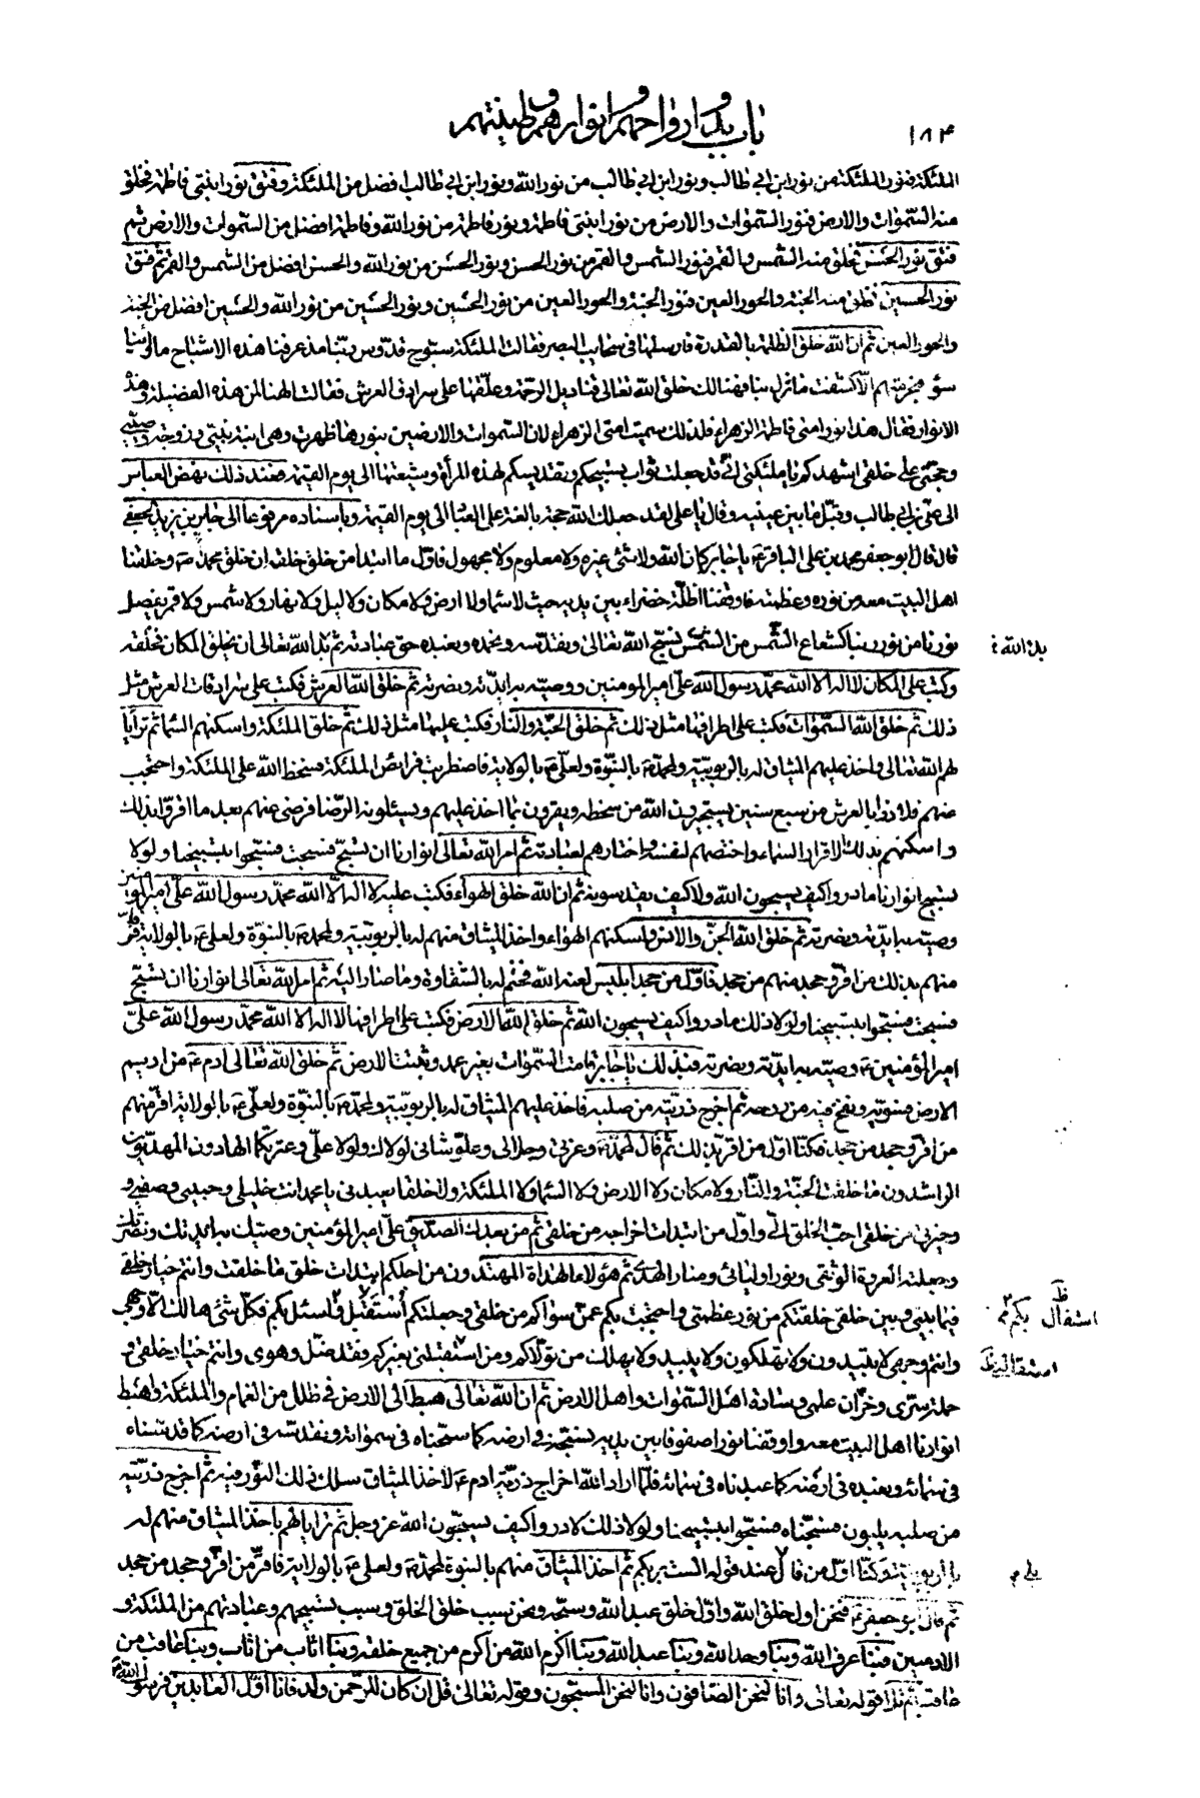 باب بدو ارواحهم و انوارهم و طينتهم
١٨٤
الملئكة فنور الملئكة من نور ابن ابي طالب و نور ابن ابي طالب من نور الله و نور ابن ابي طالب افضل من الملئكة و فتق نور ابنتي فاطمة فخلق
منه السموات والارض فنور السموات والارض من نور ابنتي فاطمة و نور فاطمة من نور الله و فاطمة افضل من السموات والارض ثم
فتق نور الحسن فخلق منه الشمس والقمر فنور الشمس والقمر من نور الحسن و نور الحسن من نور الله والحسن افضل من الشمس والقمر ثم فتق
نور الحسين فخلق منه الجنة والحور العين فنور الجنة والحور العين من نور الحسين و نور الحسين من نور الله والحسين افضل من الجنة
والحور العين ثم ان الله خلق الظلمة بالقدرة فارسلها في سحايب البصر فقالت الملئكة سبوح قدوس ربنا مذ عرفنا هذه الاشباح ما راينا
سؤ فبحرمتهم الا كشفت ما نزل بنا فهنالك خلق الله تعالى قناديل الرحمة و علقها على سرادق العرش فقالت الهنا لمن هذه الفضيلة و هذه
الانوار فقال هذا نور امتي فاطمة الزهراء فلذلك سميت امتي الزهراء لان السموات والارضين بنورها ظهرت وهي ابنة نبيي و زوجة وصيي
و حجتي على خلقي اشهدكم يا ملئكتي اني قد جعلت ثواب تسبيحكم و تقديسكم لهذه المرأة و شيعتها الى يوم القيمة فعند ذلك نهض العباس
الى علي بن ابي طالب و قبل ما بين عينيه و قال يا علي لقد جعلك الله حجة بالغة على العباد الى يوم القيمة و باسناده مرفوعا الى جابر بن يزيد الجعفي
قال قال ابو جعفر محمد بن علي الباقر ع يا جابر كان الله ولا شئ غيره ولا معلوم ولا مجهول فاول ما ابتدا من خلق خلقه ان خلق محمدا ص و خلقنا
اهل البيت معه من نوره و عظمته فاوقفنا اظلة خضراء بين يديه حيث لا سماء ولا ارض ولا مكان ولا ليل ولا نهار ولا شمس ولا قمر يفصل
نورنا من نور ربنا كشعاع الشمس من الشمس نسبح الله تعالى و نقدسه و نحمده و نعبده حق عبادته ثم بدا لله تعالى ان يخلق المكان فخلقه
بدء الله
و كتب على المكان لا اله الا الله محمد رسول الله علي امير المؤمنين و وصيه به ايدته و نصرته ثم خلق الله العرش فكتب على سرادقات العرش مثل
ذلك ثم خلق الله السموات فكتب على اطرافها مثل ذلك ثم خلق الجنة والنار فكتب عليها مثل ذلك ثم خلق الملئكة و اسكنهم السماء ثم ترايا
لهم الله تعالى و اخذ عليهم الميثاق له بالربوبية و لمحمد ص بالنبوة و لعلي ع بالولاية فاضطربت فرائص الملئكة فسخط الله على الملئكة و احتجب
عنهم فلاذوا بالعرش من سبع سنين يستجيرون الله من سخطه و يقرون بما اخذ عليهم و يسئلونه الرضا فرضي عنهم بعد ما اقروا بذلك
و اسكنهم بذلك الاقرار السماء و اختصهم لنفسه و اختارهم لعبادته ثم امر الله تعالى انوارنا ان تسبح فسبحت فسبحوا بتسبيحنا و لولا
تسبيح انوارنا ما دروا كيف يسبحون الله ولا كيف يقدسونه ثم ان الله خلق الهواء فكتب عليه لا اله الا الله محمد رسول الله علي امير المؤمنين
وصيه به ايدته و نصرته ثم خلق الله الجن والانس و اسكنهم الهواء و اخذ الميثاق منهم له بالربوبية و لمحمد ص بالنبوة و لعلي ع بالولاية فاقر
منهم بذلك من اقر و جحد منهم من جحد فاول من جحد ابليس لعنه الله فختم له بالشقاوة و ما صار اليه ثم امر الله تعالى انوارنا ان تسبح
فسبحت فسبحوا بتسبيحنا و لولا ذلك ما دروا كيف يسبحون الله ثم خلق الله الارض فكتب على اطرافها لا اله الا الله محمد رسول الله علي
امير المؤمنين ع وصيه به ايدته و نصرته فبذلك يا جابر قامت السموات بغير عمد و ثبتت الارض ثم خلق الله تعالى ادم ع من اديم
الارض فسويه و نفخ فيه من روحه ثم اخرج ذريته من صلبه فاخذ عليهم الميثاق له بالربوبية و لمحمد ص بالنبوة و لعلي ع بالولاية اقر منهم
من اقر و جحد من جحد فكنا اول من اقر بذلك ثم قال لمحمد ص و عزتي و جلالي و علو شاني لولاك و لولا علي و عترتكما الهادون المهديون
الراشدون ما خلقت الجنة والنار ولا مكان ولا الارض ولا السماء ولا الملئكة ولا خلقا يعبدني يا محمد انت خليلي و حبيبي و صفيي و
خيرتي من خلقي احب الخلق الي و اول من ابتدات اخراجه من خلقي ثم من بعدك الصديق علي امير المؤمنين وصيك به ايدتك و نصرتك
و جعلته العروة الوثقى و نور اوليائي و منار الهدى ثم هؤلاء الهداة المهتدون من اجلكم ابتدات خلق ما خلقت و انتم خيار خلقي
فيما بيني و بين خلقي خلقتكم من نور عظمتي و احتجبت بكم عمن سواكم من خلقي و جعلتكم استقبل و اسئل بكم فكل شئ هالك الا وجهي
استقال بكم ظ
و انتم وجهي لا تبيدون ولا تهلكون ولا يبيد ولا يهلك من تولاكم و من استقبلني بغيركم فقد ضل و هوى و انتم خيار خلقي و
استقالني ظ
حملة سري و خزان علمي و سادة اهل السموات و اهل الارض ثم ان الله تعالى هبط الى الارض في ظلل من الغمام والملئكة و اهبط
انوارنا اهل البيت معه و اوقفنا نورا صفوفا بين يديه نسبحه في ارضه كما سبحناه في سمواته و نقدسه في ارضه كما قدسناه
في سمائه و نعبده في ارضه كما عبدناه في سمائه فلما اراد الله اخراج ذرية ادم ع لاخذ الميثاق سلك ذلك النور فيه ثم اخرج ذريته
من صلبه يلبون فسبحناه فسبحوا بتسبيحنا و لولا ذلك لا دروا كيف يسبحون الله عز و جل ثم ترايا لهم باخذ الميثاق منهم له
بالربوبية و كنا اول من قال عند قوله الست بربكم ثم اخذ الميثاق منهم بالنبوة لمحمد ص و لعلي ع بالولاية فاقر من اقر و جحد من جحد
بلى م
ثم قال ابو جعفر ع فنحن اول خلق الله و اول خلق عبد الله و سبحه و نحن سبب خلق الخلق و سبب تسبيحهم و عبادتهم من الملئكة و
الادميين فبنا عرف الله و بنا وحد الله و بنا عبد الله و بنا اكرم الله من اكرم من جميع خلقه و بنا اثاب من اثاب و بنا عاقب من
عاقب ثم تلا قوله تعالى و انا لنحن الصافون و انا لنحن المسبحون و قوله تعالى قل ان كان للرحمن ولد فانا اول العابدين فرسول الله ص